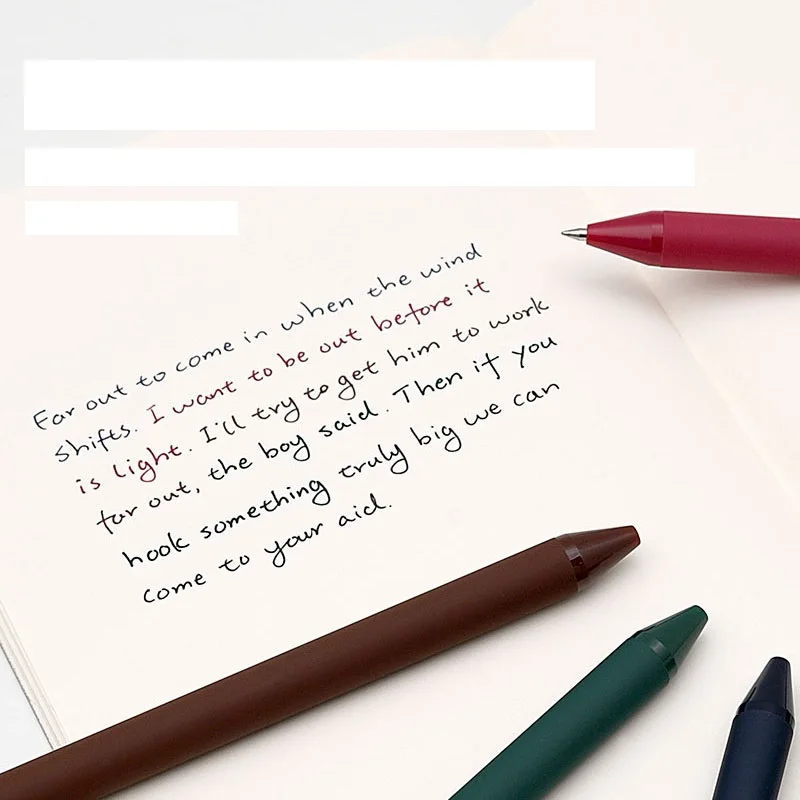 Far out to come in when the wind
shifts. I want to be out before it
is light. I'll try to get him to work
far out, the boy said. Then if you
hook something truly big we can
come to your aid.